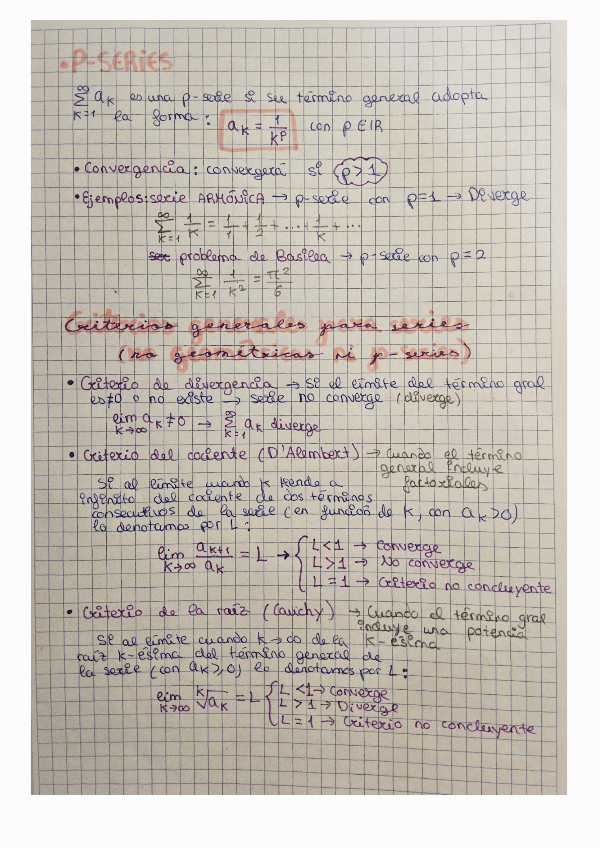 • P-SERIES
∞ Σ K=1 aK es una p-serie si su término general adopta
la forma: aK = 1/K^p con p ∈ IR
• Convergencia: convergerá si p > 1
• Ejemplos: serie ARMÓNICA → p-serie con p=1 → Diverge
∞ Σ K=1 1/K = 1/1 + 1/2 + ... + 1/K + ...
problema de Basilea → p-serie con p = 2
∞ Σ K=1 1/K² = π²/6
Criterios generales para series
(no geométricas ni p-series)
• Criterio de divergencia → Si el límite del término gral
es ≠ 0 o no existe → serie no converge (diverge)
lim K→∞ aK ≠ 0 → ∞ Σ K=1 aK diverge
• Criterio del cociente (D'Alembert) → Cuando el término
general incluye
factoriales
Si al límite cuando K tiende a
infinito del cociente de dos términos
consecutivos de la serie (en función de K, con aK > 0)
lo denotamos por L:
lim K→∞ aK+1/aK = L → { L < 1 → Converge
L > 1 → No converge
L = 1 → Criterio no concluyente
• Criterio de la raíz (Cauchy) → Cuando el término gral
incluye una potencia
K-ésima
Si al límite cuando K→∞ de la
raíz K-ésima del término general de
la serie (con aK ≥ 0) lo denotamos por L:
lim K→∞ ᴷ√aK = L { L < 1 → Converge
L > 1 → Diverge
L = 1 → Criterio no concluyente